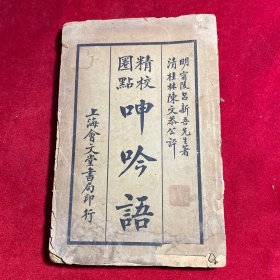 明寗陵呂新吾先生著
清桂林陳文恭公評
精校
圈點
呻吟語
上海會文堂書局印行